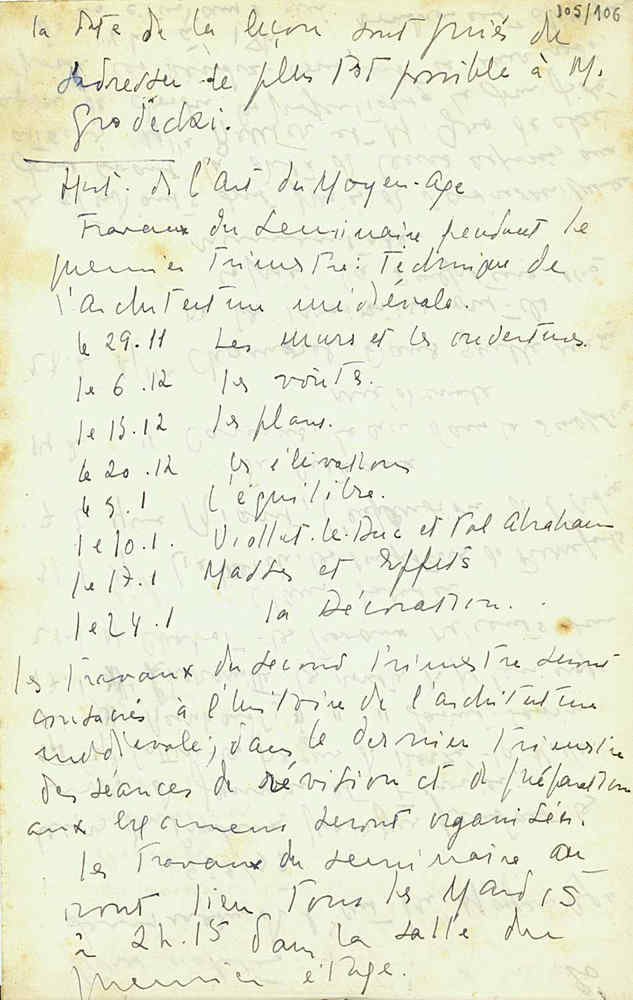 105/106
la date de la leçon sont priés de
s'adresser le plus tôt possible à M.
Grodecki.
Hist. de l'Art du Moyen-Age
Travaux du Seminaire pendant le
premier trimestre: technique de
l'architecture médiévale.
le 29.11 Les murs et les ouvertures.
le 6.12 les voûtes.
le 13.12 les plans.
le 20.12 les élévations
le 3.1 l'équilibre.
le 10.1. Viollet-le-Duc et Pol Abraham
le 17.1 Masses et Effets
le 24.1 la Décoration.
Les travaux du second trimestre seront
consacrés à l'histoire de l'architecture
médiévale; dans le dernier trimestre
des séances de révision et de préparation
aux examens seront organisées.
Les travaux du seminaire au
ront lieu tous les Mardis
à 2h.15 dans la salle du
premier étage.